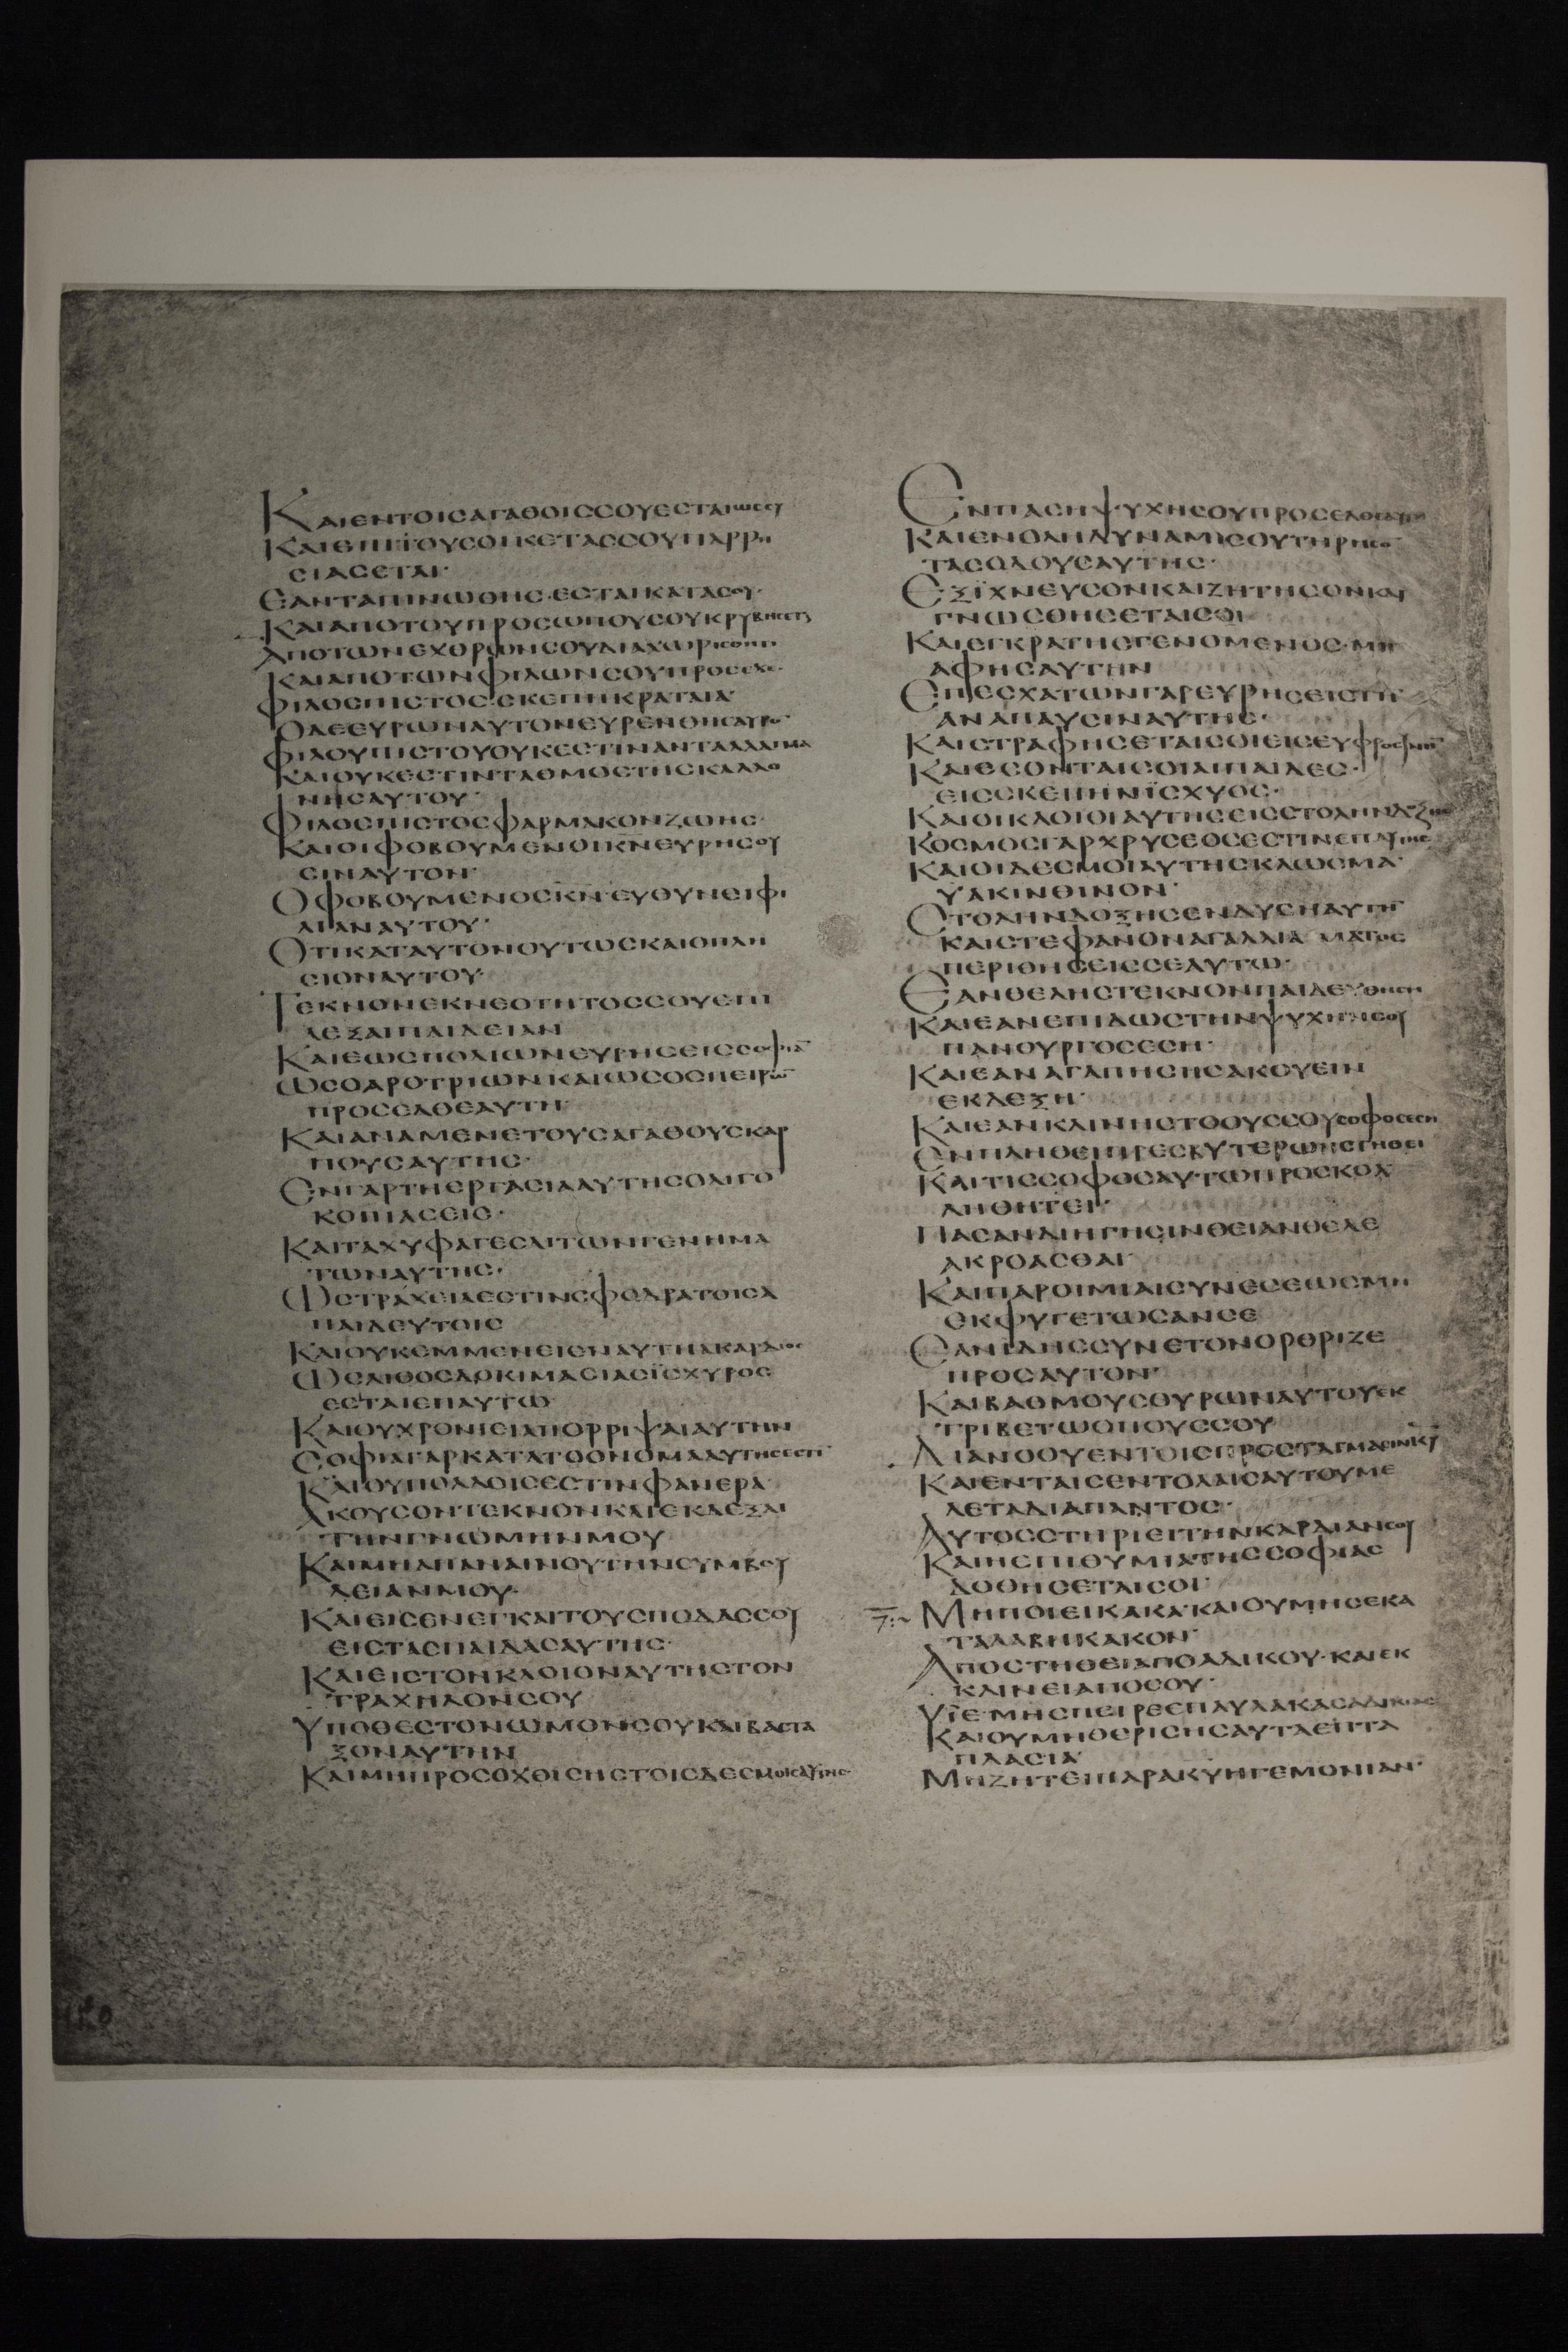 ΚΑΙΕΝΤΟΙCΑΓΑΘΟΙCCΟΥΕCΤΑΙωCCΥ
ΚΑΙΕΠΙΤΟΥCΟΙΚΕΤΑCCΟΥΠΑΡΡΗ
CΙΑCΕΤΑΙ·
ΕΑΝΤΑΠΙΝΩΘΗC·ΕCΤΑΙΚΑΤΑCΟΥ·
ΚΑΙΑΠΟΤΟΥΠΡΟCΩΠΟΥCΟΥΚΡΥΒΗCΕΤΑΙ
ΑΠΟΤΩΝΕΧΘΡΩΝCΟΥΔΙΑΧΩΡΙCΘΗΤΙ
ΚΑΙΑΠΟΤΩΝΦΙΛΩΝCΟΥΠΡΟCΕΧΕ·
ΦΙΛΟCΠΙCΤΟC·CΚΕΠΗΚΡΑΤΑΙΑ·
ΟΔΕΕΥΡΩΝΑΥΤΟΝΕΥΡΕΝΘΗCΑΥΡΟ̅·
ΦΙΛΟΥΠΙCΤΟΥΟΥΚΕCΤΙΝΑΝΤΑΛΛΑΓΜΑ
ΚΑΙΟΥΚΕCΤΙΝCΤΑΘΜΟCΤΗCΚΑΛΛΟ
ΝΗCΑΥΤΟΥ·
ΦΙΛΟCΠΙCΤΟCΦΑΡΜΑΚΟΝΖΩΗC·
ΚΑΙΟΙΦΟΒΟΥΜΕΝΟΙΚ̅Ν̅ΕΥΡΗCΟΥ
CΙΝΑΥΤΟΝ·
ΟΦΟΒΟΥΜΕΝΟCΚ̅Ν̅·ΕΥΘΥΝΕΙΦΙ
ΛΙΑΝΑΥΤΟΥ·
ΟΤΙΚΑΤΑΥΤΟΝΟΥΤΩCΚΑΙΟΠΛΗ
CΙΟΝΑΥΤΟΥ·
ΤΕΚΝΟΝΕΚΝΕΟΤΗΤΟCCΟΥΕΠΙ
ΛΕΞΑΙΠΑΙΔΕΙΑΝ
ΚΑΙΕΩCΠΟΛΙΩΝΕΥΡΗCΕΙCCΟΦΙΑ̅
ΩCΟΑΡΟΤΡΙΩΝΚΑΙΩCΟCΠΕΙΡΩ̅
ΠΡΟCΕΛΘΕΑΥΤΗ·
ΚΑΙΑΝΑΜΕΝΕΤΟΥCΑΓΑΘΟΥCΚΑΡ
ΠΟΥCΑΥΤΗC·
ΕΝΓΑΡΤΗΕΡΓΑCΙΑΑΥΤΗCΟΛΙΓΟ
ΚΟΠΙΑCΕΙC·
ΚΑΙΤΑΧΥΦΑΓΕCΑΙΤΩΝΓΕΝΗΜΑ
ΤΩΝΑΥΤΗC·
ΩCΤΡΑΧΕΙΑΕCΤΙΝCΦΟΔΡΑΤΟΙCΑ
ΠΑΙΔΕΥΤΟΙC
ΚΑΙΟΥΚΕΜΜΕΝΕΙΕΝΑΥΤΗΑΚΑΡΔΙΟC
ΩCΛΙΘΟCΔΟΚΙΜΑCΙΑCΙCΧΥΡΟC
ΕCΤΑΙΕΠΑΥΤΩ·
ΚΑΙΟΥΧΡΟΝΙCΙΑΠΟΡΡΙΨΑΙΑΥΤΗΝ
CΟΦΙΑΓΑΡΚΑΤΑΤΟΟΝΟΜΑΑΥΤΗCΕCΤΙ̅
ΚΑΙΟΥΠΟΛΛΟΙCΕCΤΙΝΦΑΝΕΡΑ·
ΑΚΟΥCΟΝΤΕΚΝΟΝΚΑΙΕΚΔΕΞΑΙ
ΤΗΝΓΝΩΜΗΝΜΟΥ
ΚΑΙΜΗΑΠΑΝΑΙΝΟΥΤΗΝCΥΜΒΟΥ
ΛΕΙΑΝΜΟΥ·
ΚΑΙΕΙCΕΝΕΓΚΑΙΤΟΥCΠΟΔΑCCΟΥ
ΕΙCΤΑCΠΑΙΔΑCΑΥΤΗC·
ΚΑΙΕΙCΤΟΝΚΛΟΙΟΝΑΥΤΗCΤΟΝ
ΤΡΑΧΗΛΟΝCΟΥ
ΥΠΟΘΕCΤΟΝΩΜΟΝCΟΥΚΑΙΒΑCΤΑ
ΞΟΝΑΥΤΗΝ
ΚΑΙΜΗΠΡΟCΟΧΘΙCΗCΤΟΙCΔΕCΜΟΙCΑΥΤΗC·
ΕΝΠΑCΗΨΥΧΗCΟΥΠΡΟCΕΛΘΕΑΥΤΗ
ΚΑΙΕΝΟΛΗΔΥΝΑΜΙCΟΥΤΗΡΗCΟ̅
ΤΑCΟΔΟΥCΑΥΤΗC·
ΕΞΪΧΝΕΥCΟΝΚΑΙΖΗΤΗCΟΝΚΑΙ
ΓΝΩCΘΗCΕΤΑΙCΟΙ
ΚΑΙΕΓΚΡΑΤΗCΓΕΝΟΜΕΝΟC·ΜΗ
ΑΦΗCΑΥΤΗΝ
ΕΠΕCΧΑΤΩΝΓΑΡΕΥΡΗCΕΙCΤΗ̅
ΑΝΑΠΑΥCΙΝΑΥΤΗC·
ΚΑΙCΤΡΑΦΗCΕΤΑΙCΟΙΕΙCΕΥΦΡΟCΥΝΗ̅
ΚΑΙΕCΟΝΤΑΙCΟΙΑΙΠΑΙΔΕC·
ΕΙCCΚΕΠΗΝΪCΧΥΟC·
ΚΑΙΟΙΚΛΟΙΟΙΑΥΤΗCΕΙCCΤΟΛΗΝΔΟΞΗC
ΚΟCΜΟCΓΑΡΧΡΥCΕΟCΕCΤΙΝΕΠΑΥΤΗC
ΚΑΙΟΙΔΕCΜΟΙΑΥΤΗCΚΛΩCΜΑ·
ΥΑΚΙΝΘΙΝΟΝ·
CΤΟΛΗΝΔΟΞΗCΕΝΔΥCΗΑΥΤΗ̅
ΚΑΙCΤΕΦΑΝΟΝΑΓΑΛΛΙΑΜΑΤΟC
ΠΕΡΙΘΗCΕΙCCΕΑΥΤΩ·
ΕΑΝΘΕΛΗCΤΕΚΝΟΝΠΑΙΔΕΥΘΗCΗ
ΚΑΙΕΑΝΕΠΙΔΩCΤΗΝΨΥΧΗΝCΟΥ
ΠΑΝΟΥΡΓΟCΕCΗ·
ΚΑΙΕΑΝΑΓΑΠΗCΗCΑΚΟΥΕΙΝ
ΕΚΔΕΞΗ·
ΚΑΙΕΑΝΚΛΙΝΗCΤΟΟΥCCΟΥCΟΦΟCΕCΗ
ΕΝΠΛΗΘΕΙΠΡΕCΒΥΤΕΡΩΝCΤΗΘΕΙ
ΚΑΙΤΙCCΟΦΟCΑΥΤΩΠΡΟCΚΟΛ
ΛΗΘΗΤΕΙ·
ΠΑCΑΝΔΙΗΓΗCΙΝΘΕΙΑΝΘΕΛΕ
ΑΚΡΟΑCΘΑΙ·
ΚΑΙΠΑΡΟΙΜΙΑΙCΥΝΕCΕΩCΜΗ
ΕΚΦΥΓΕΤΩCΑΝCΕ
ΕΑΝΙΔΗCCΥΝΕΤΟΝΟΡΘΡΙΖΕ
ΠΡΟCΑΥΤΟΝ·
ΚΑΙΒΑΘΜΟΥCΟΥΡΩΝΑΥΤΟΥΕΚ
ΤΡΙΒΕΤΩΟΠΟΥCCΟΥ
ΔΙΑΝΟΟΥΕΝΤΟΙCΠΡΟCΤΑΓΜΑCΙΝΚ̅Υ̅
ΚΑΙΕΝΤΑΙCΕΝΤΟΛΑΙCΑΥΤΟΥΜΕ
ΛΕΤΑΔΙΑΠΑΝΤΟC·
ΑΥΤΟCCΤΗΡΙΕΙΤΗΝΚΑΡΔΙΑΝCΟΥ
ΚΑΙΗΕΠΙΘΥΜΙΑΤΗCCΟΦΙΑC
ΔΟΘΗCΕΤΑΙCΟΙ·
Ζ ΜΗΠΟΙΕΙΚΑΚΑ·ΚΑΙΟΥΜΗCΕΚΑ
ΤΑΛΑΒΗΚΑΚΟΝ·
ΑΠΟCΤΗΘΕΙΑΠΟΑΔΙΚΟΥ·ΚΑΙΕΚ
ΚΛΙΝΕΙΑΠΟCΟΥ·
ΥΪΕ·ΜΗCΠΕΙΡΕΕΠΑΥΛΑΚΑCΑΔΙΚΙΑC
ΚΑΙΟΥΜΗΘΕΡΙCΗCΑΥΤΑΕΠΤΑ
ΠΛΑCΙΑ·
ΜΗΖΗΤΕΙΠΑΡΑΚ̅Υ̅ΗΓΕΜΟΝΙΑΝ·